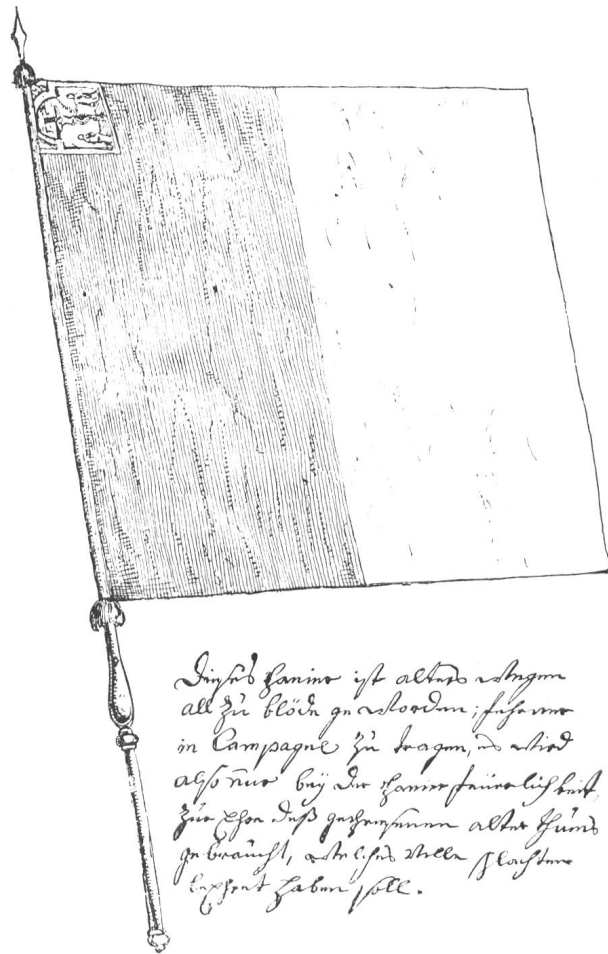 Dieses Panier ist alters wegen
all zu blöde geworden, fehrner
in Campagne zu tragen, es wird
also nur bey der Panier feuerlichkeit,
zur Ehre deß alter thums
gebraucht, welches Ville Schlachten
haben soll.